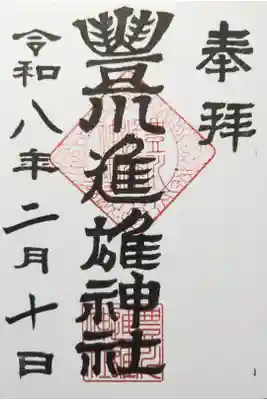 奉拝
豐川進雄神社
令和八年二月十日